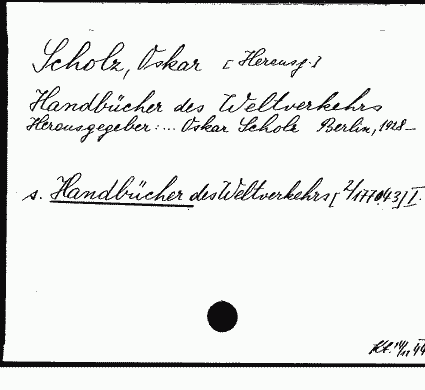 Scholz, Oskar [Herausg.]
Handbücher des Weltverkehrs
Herausgegeber: ... Oskar Scholz Berlin, 1928—
s. Handbücher des Weltverkehrs [2/177043] I.